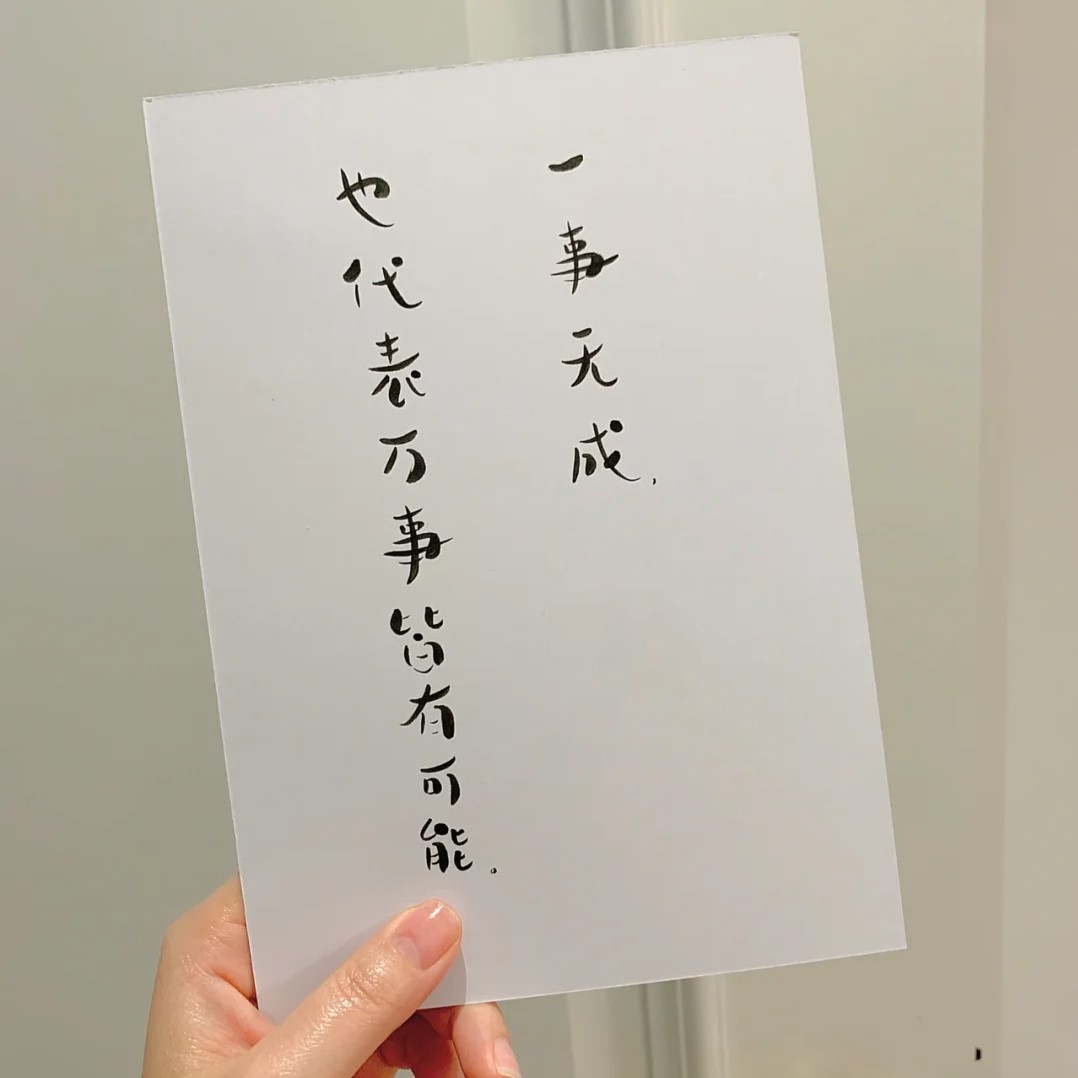 一事无成，
也代表万事皆有可能。